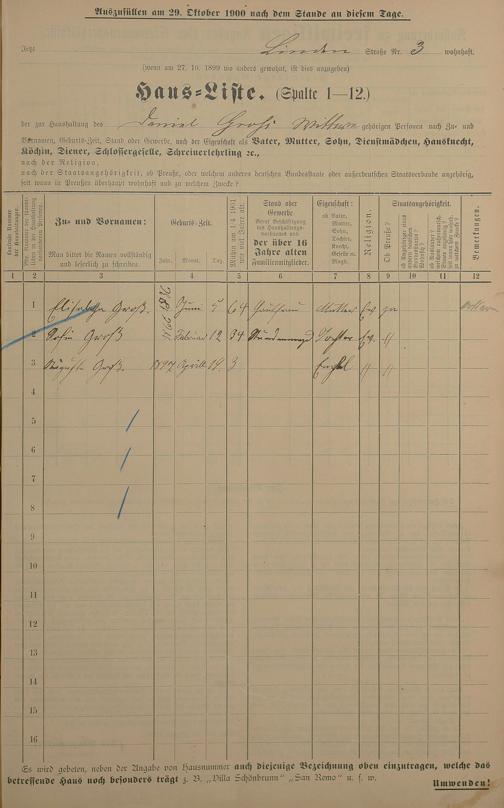 Auszufüllen am 29. Oktober 1900 nach dem Stande an diesem Tage.
Jetzt Linden Straße Nr. 3 wohnhaft.
(wenn am 27. 10. 1899 wo anders gewohnt, ist dies anzugeben)
Haus-Liste. (Spalte 1—12.)
der zur Haushaltung des Daniel Groß Wittwe gehörigen Personen nach Zu- und
Vornamen, Geburts-Zeit, Stand oder Gewerbe, nach der Eigenschaft als Vater, Mutter, Sohn, Dienstmädchen, Hausknecht,
Köchin, Diener, Schlossergeselle, Schreinerlehrling 2c.,
nach der Religion,
nach der Staatsangehörigkeit, ob Preuße, oder welchem anderen deutschen Bundesstaate oder außerdeutschen Staatsverbande angehörig,
seit wann in Preußen überhaupt wohnhaft und zu welchem Zwecke?
Zu- und Vornamen:
Man bittet die Namen vollständig
und leserlich zu schreiben.
Geburts-Zeit.
Jahr. Monat. Tag.
Mithin am 1/4 1901
wie viel Jahre alt.
Stand oder
Gewerbe
der über 16
Jahre alten
Familienmitglieder.
Eigenschaft:
ob Vater,
Mutter,
Sohn,
Tochter,
Knecht,
Geselle u.
Magd.
Religion.
Staatsangehörigkeit.
Ob Preuße?
Bemerkungen.
1 2 3 4 5 6 7 8 9 10 11 12
1 Elisabetha Groß. Juni 5 64 Hausfrau Mutter Ev. ja
2 Sofie Groß Februar 12 34 Tochter Ev. "
3 Auguste Groß. 1897 Aprill 14 3 Enkel " "
4
5
6
7
8
9
10
11
12
13
14
15
16
Es wird gebeten, neben der Angabe von Hausnummer auch diejenige Bezeichnung oben einzutragen, welche das
betreffende Haus noch besonders trägt z. B. „Villa Schönbrunn" „San Remo" u. s. w.
Umwenden!